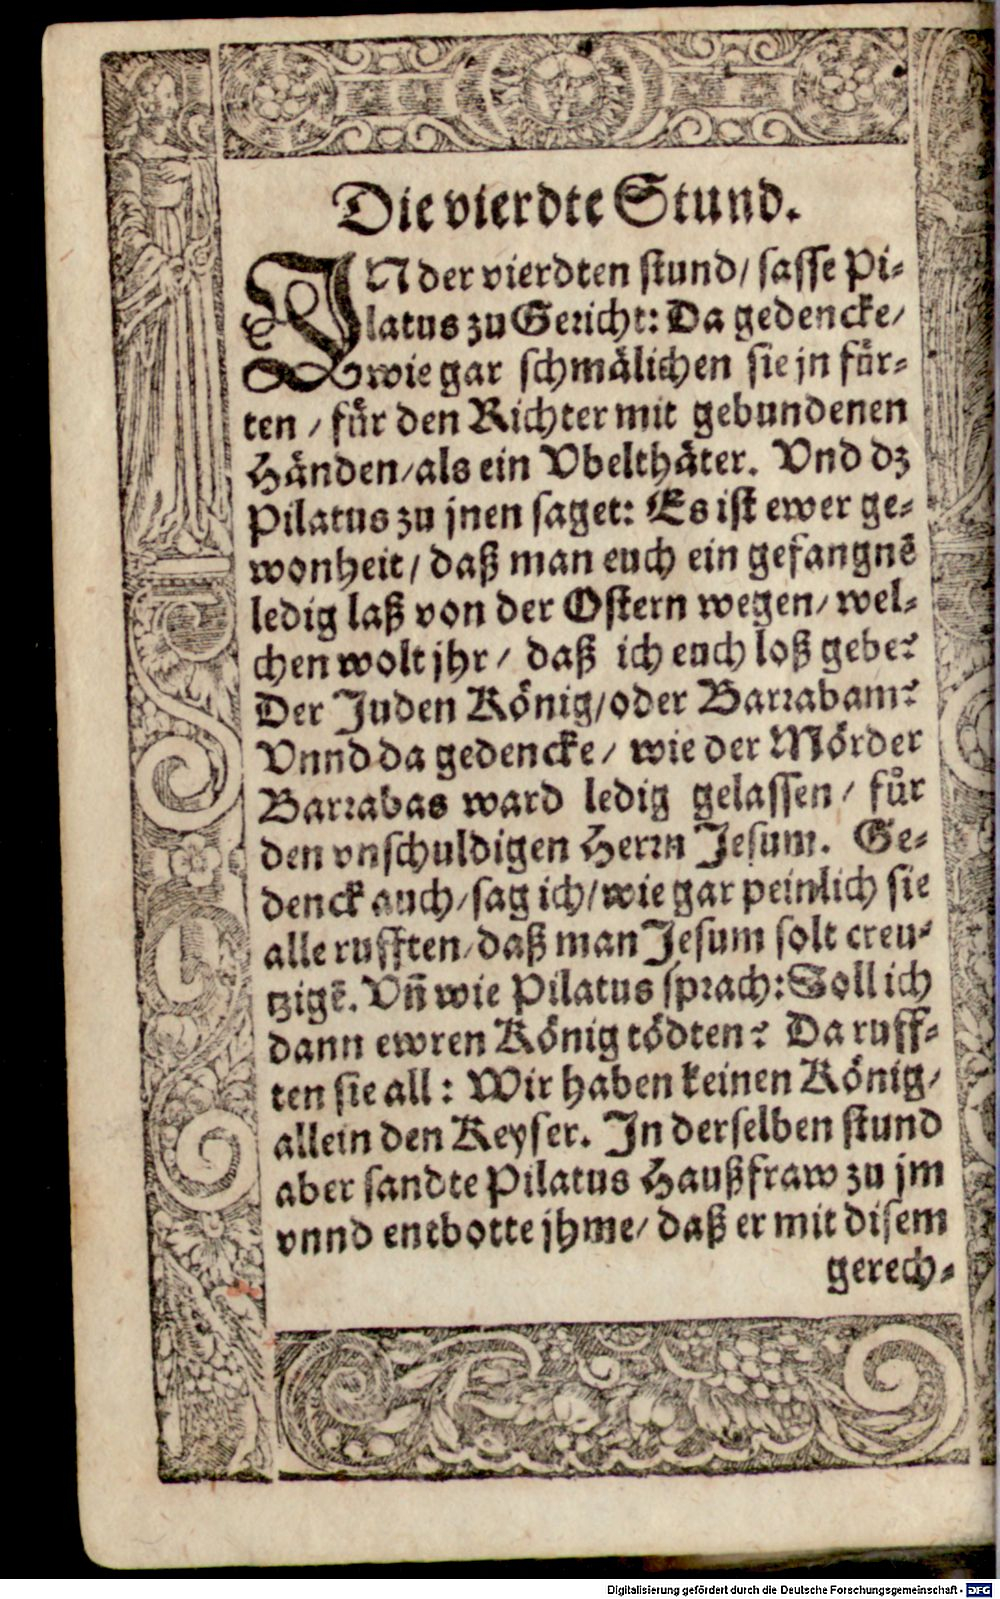 Die vierdte Stund.
IN der vierdten stund/ sasse Pi-
latus zu Gericht: Da gedencke/
wie gar schmälichen sie jn für-
ten / für den Richter mit gebundenen
Händen/als ein Vbelthäter. Vnd dz
Pilatus zu jnen saget: Es ist ewer ge-
wonheit/ daß man euch ein gefangnē
ledig laß von der Ostern wegen/ wel-
chen wolt jhr/ daß ich euch loß gebe?
Der Juden König/oder Barrabam?
Vnnd da gedencke/ wie der Mörder
Barrabas ward ledig gelassen/ für
den vnschuldigen Herrn Jesum. Ge-
denck auch/sag ich/wie gar peinlich sie
alle rufften/daß man Jesum solt creu-
tzigē. Vñ wie Pilatus sprach: Soll ich
dann ewren König tödten? Da ruff-
ten sie all: Wir haben keinen König/
allein den Keyser. In derselben stund
aber sandte Pilatus Haußfraw zu jm
vnnd entbotte jhme/ daß er mit disem
gerech-
Digitalisierung gefördert durch die Deutsche Forschungsgemeinschaft - DFG